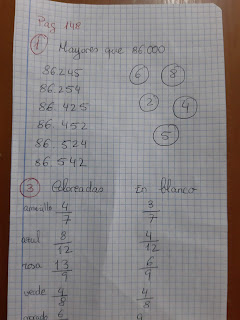 Pag 148
1 Mayores que 86.000
86.245 6 8
86.254
86.425 2 4
86.452
86.524 5
86.542
3 Coloreadas En blanco
amarillo 4/7 3/7
azul 8/12 4/12
rosa 13/9 6/9
verde 4/8 4/8
morado 6 9